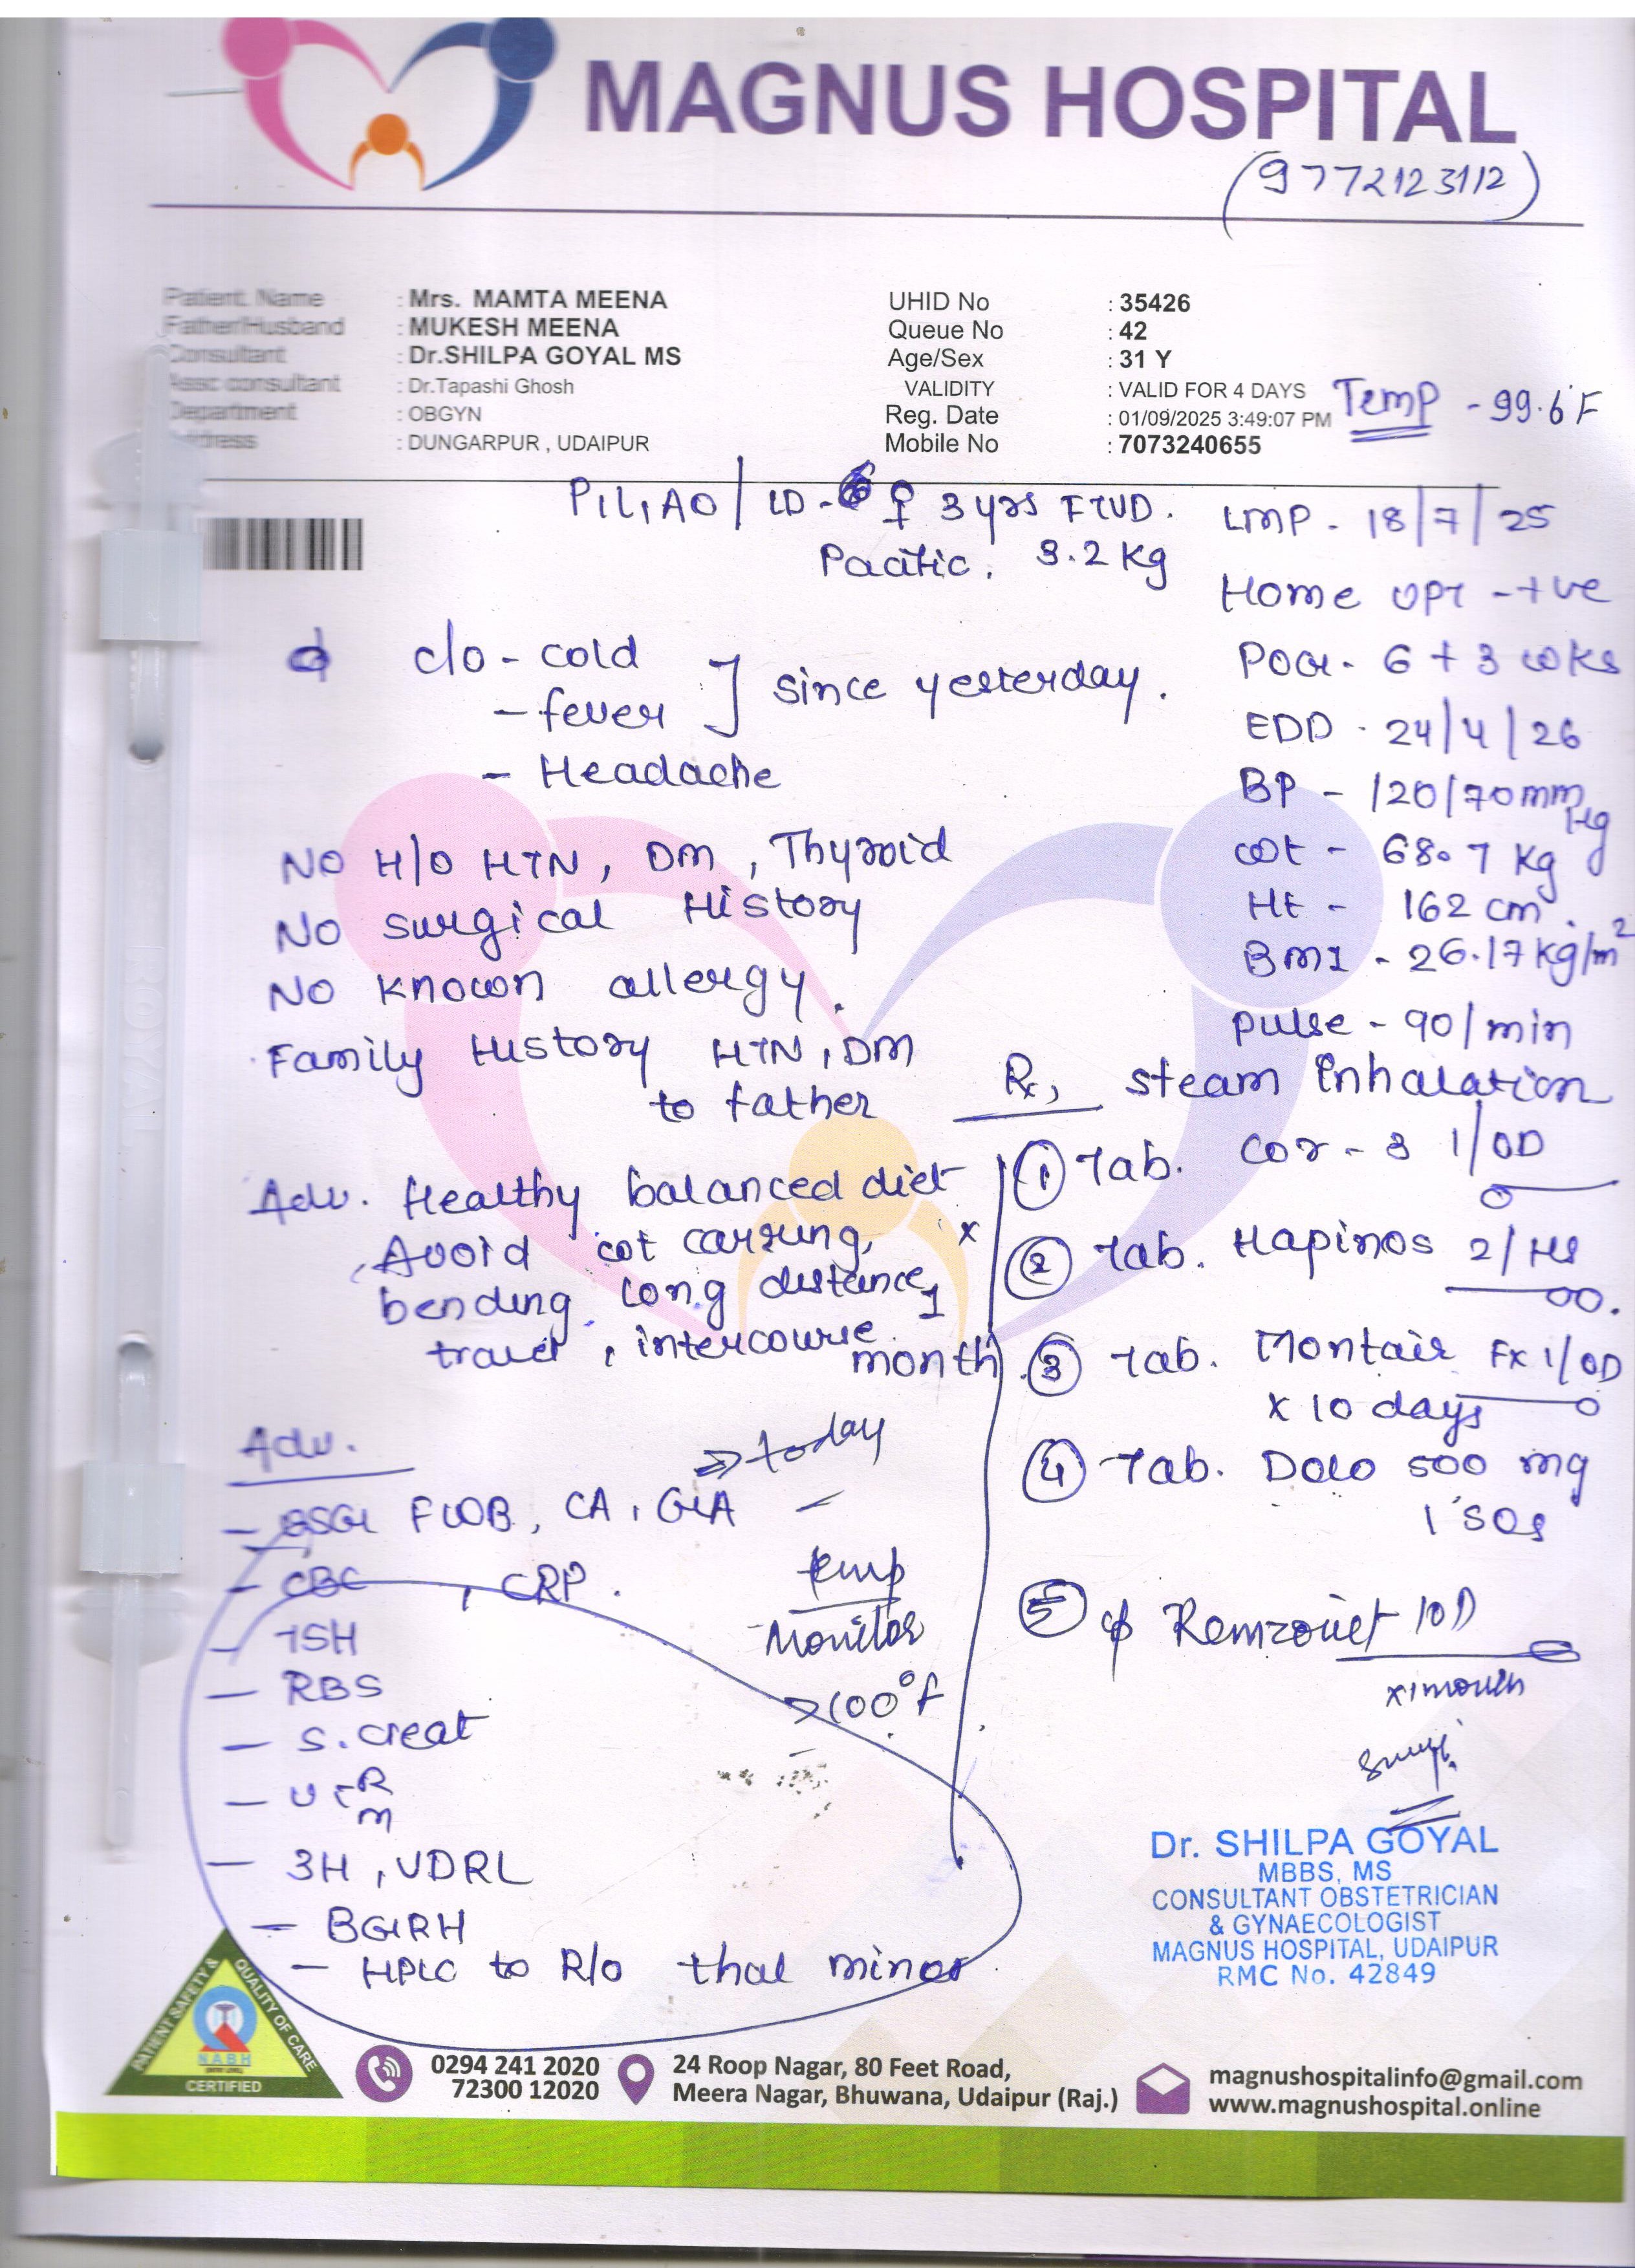 MAGNUS HOSPITAL
(9772123112)
Patient Name : Mrs. MAMTA MEENA
Father/Husband : MUKESH MEENA
Consultant : Dr.SHILPA GOYAL MS
Assc consultant : Dr.Tapashi Ghosh
Department : OBGYN
Address : DUNGARPUR , UDAIPUR
UHID No : 35426
Queue No : 42
Age/Sex : 31 Y
VALIDITY : VALID FOR 4 DAYS
Reg. Date : 01/09/2025 3:49:07 PM
Mobile No : 7073240655
Temp - 99.6°F
P1L1A0 / LD - ♀ 3 yrs FTVD.
3.2 kg
LMP - 18/7/25
Home UPT - +ve
POG - 6 + 3 wks
EDD - 24/4/26
BP - 120/70 mm Hg
wt - 68.7 kg
Ht - 162 cm.
BMI - 26.17 kg/m²
pulse - 90/min
c/o - cold
- fever ] since yesterday.
- Headache
No H/o HTN, DM, Thyroid
No surgical History
No known allergy.
Family History HTN, DM
to father
Adv. Healthy balanced diet
Avoid wt carrung,
bending long distance,
travel, intercourse.
x 1 month
Rx, steam Inhalation
① Tab. Cor - 3 1/OD
② Tab. Hapinos 2/HS
③ Tab. Montair Fx 1/OD
x 10 days
④ Tab. Dolo 500 mg
1 SOS
⑤ 10D
x 1 month
Adv.
⇒ today
- USG FWB, CA, GA -
- CBC, CRP.
- TSH
- RBS
- S. creat
- U R
m
- 3H, VDRL
- BGRH
- HPLC to R/o thal minor
temp
Monitor
>100°F
Dr. SHILPA GOYAL
MBBS, MS
CONSULTANT OBSTETRICIAN
& GYNAECOLOGIST
MAGNUS HOSPITAL, UDAIPUR
RMC No. 42849
PATIENT SAFETY & QUALITY OF CARE
NABH
CERTIFIED
0294 241 2020
72300 12020
24 Roop Nagar, 80 Feet Road,
Meera Nagar, Bhuwana, Udaipur (Raj.)
magnushospitalinfo@gmail.com
www.magnushospital.online
ROYAL